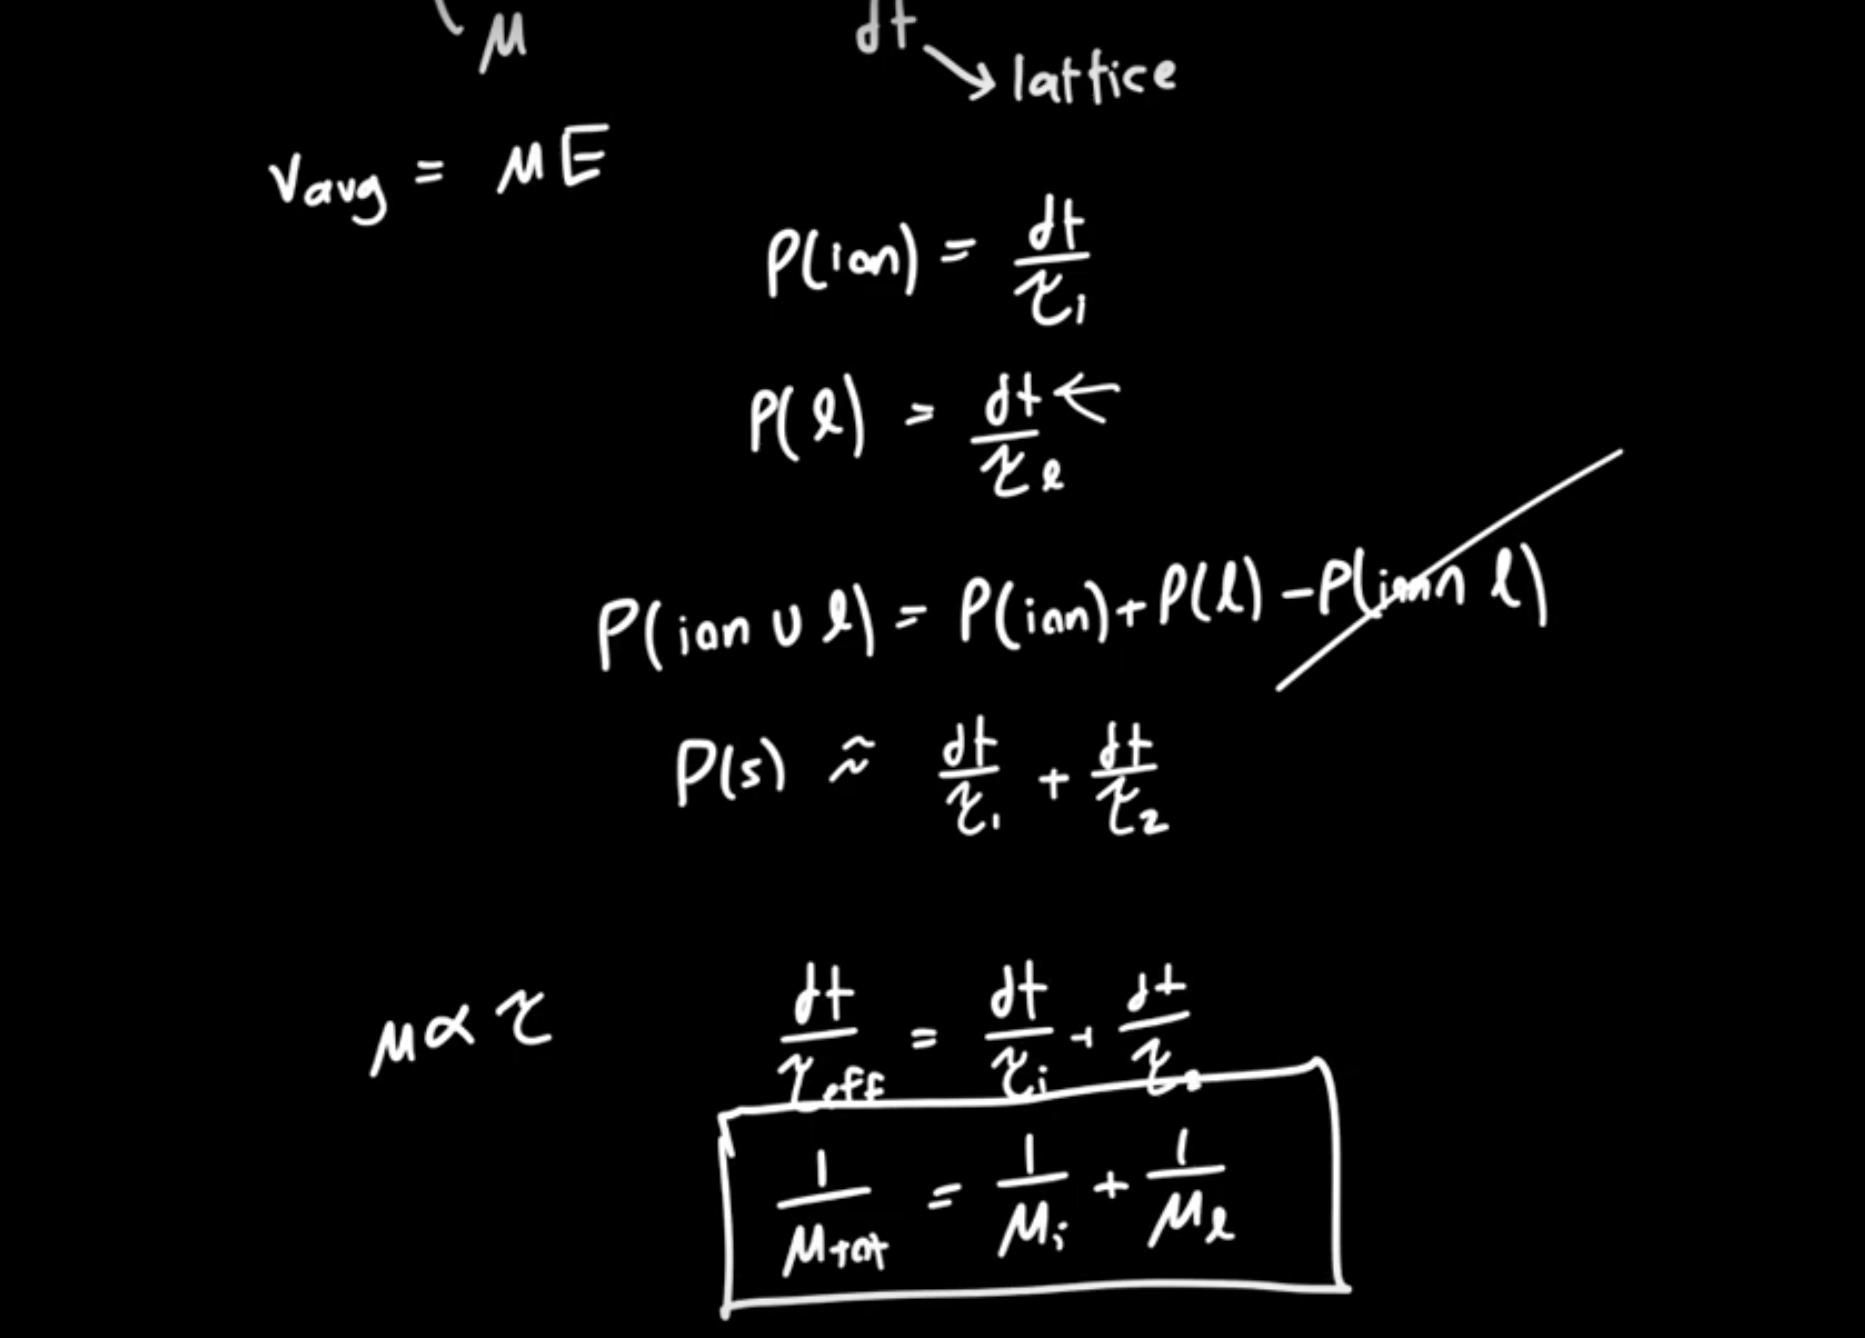 μ dt
→ lattice
Vavg = μE
P(ion) = dt/τi
P(l) = dt/τl ←
P(ion ∪ l) = P(ion) + P(l) - P(ion ∩ l)
P(s) ≈ dt/τ1 + dt/τ2
μ ∝ τ dt/τeff = dt/τi + dt/τ
1/μtot = 1/μi + 1/μl